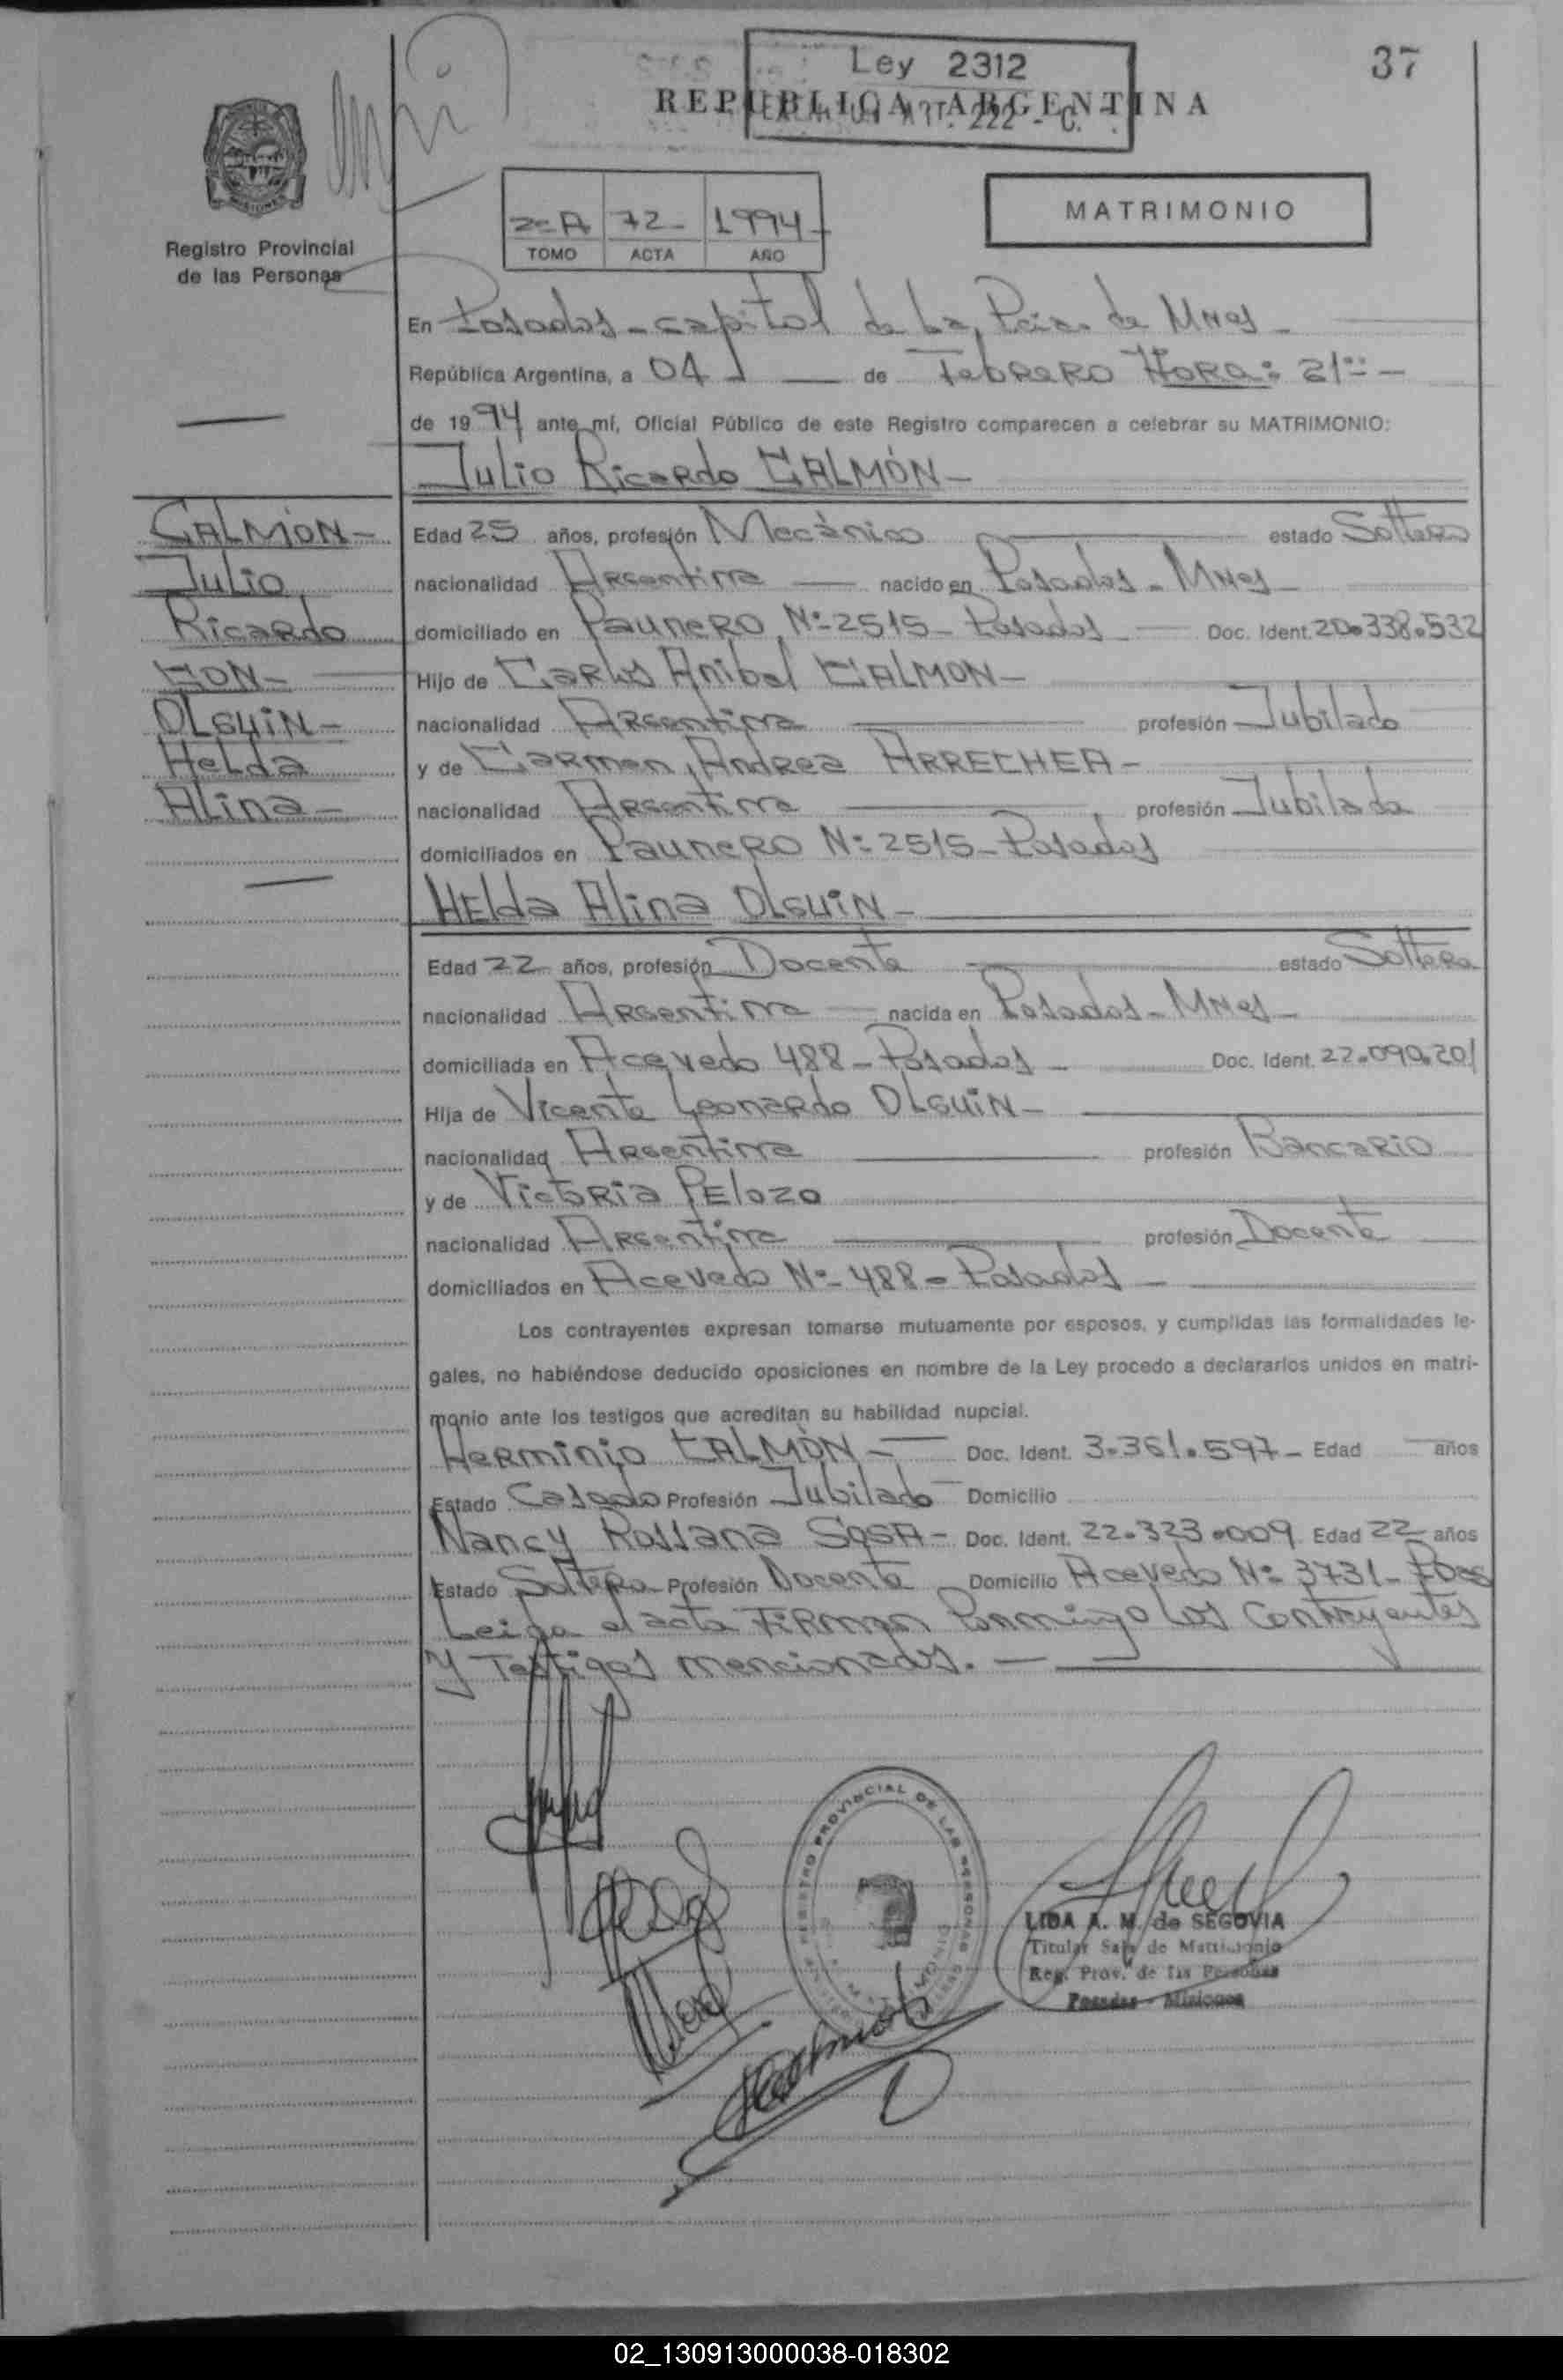 37
Ley 2312
REPUBLICA ARGENTINA
ART. 222 - C.
Registro Provincial
de las Personas
2º A 72- 1994-
TOMO ACTA AÑO
MATRIMONIO
En Posadas - capital de La Pcia. de Mnes -
República Argentina, a 04 de Febrero HORA: 21
de 1994 ante mí, Oficial Público de este Registro comparecen a celebrar su MATRIMONIO:
Julio Ricardo GALMÓN -
GALMÓN -
Julio
Ricardo
CON -
OLGUIN -
Helda
Alina -
Edad 25 años, profesión Mecánico estado Soltero
nacionalidad Argentina nacido en Posadas - Mnes -
domiciliado en Paunero Nº 2515 - Posados - Doc. Ident. 20.338.532
Hijo de Carlos Anibal GALMON -
nacionalidad Argentina profesión Jubilado
y de Carmen Andrea ARRECHEA -
nacionalidad Argentina profesión Jubilada
domiciliados en Paunero Nº 2515 - Posadas
HELda Alina OLGUIN -
Edad 22 años, profesión Docente estado Soltera
nacionalidad Argentina nacida en Posadas - Mnes -
domiciliada en Acevedo 488 - Posadas - Doc. Ident. 22.090.201
Hija de Vicente Leonardo OLGUIN -
nacionalidad Argentina profesión Bancario
y de Victoria PELOZO
nacionalidad Argentina profesión Docente
domiciliados en Acevedo Nº 488 - Posadas -
Los contrayentes expresan tomarse mutuamente por esposos, y cumplidas las formalidades le-
gales, no habiéndose deducido oposiciones en nombre de la Ley procedo a declararlos unidos en matri-
monio ante los testigos que acreditan su habilidad nupcial.
Herminio GALMÓN - Doc. Ident. 3.361.597 - Edad años
Estado Casado Profesión Jubilado Domicilio
Nancy Rossana SOSA - Doc. Ident. 22.323.009 Edad 22 años
Estado Soltera Profesión Docente Domicilio Acevedo Nº 3731 - Pdas
Leida el acta Firman Conmingo Los Contryentes
y Testigos mencionados. -
REGISTRO PROVINCIAL DE LAS PERSONAS
LIDA A. M. de SEGOVIA
Titular Sala de Matrimonio
Reg. Prov. de las Personas
Posadas - Misiones
02_130913000038-018302